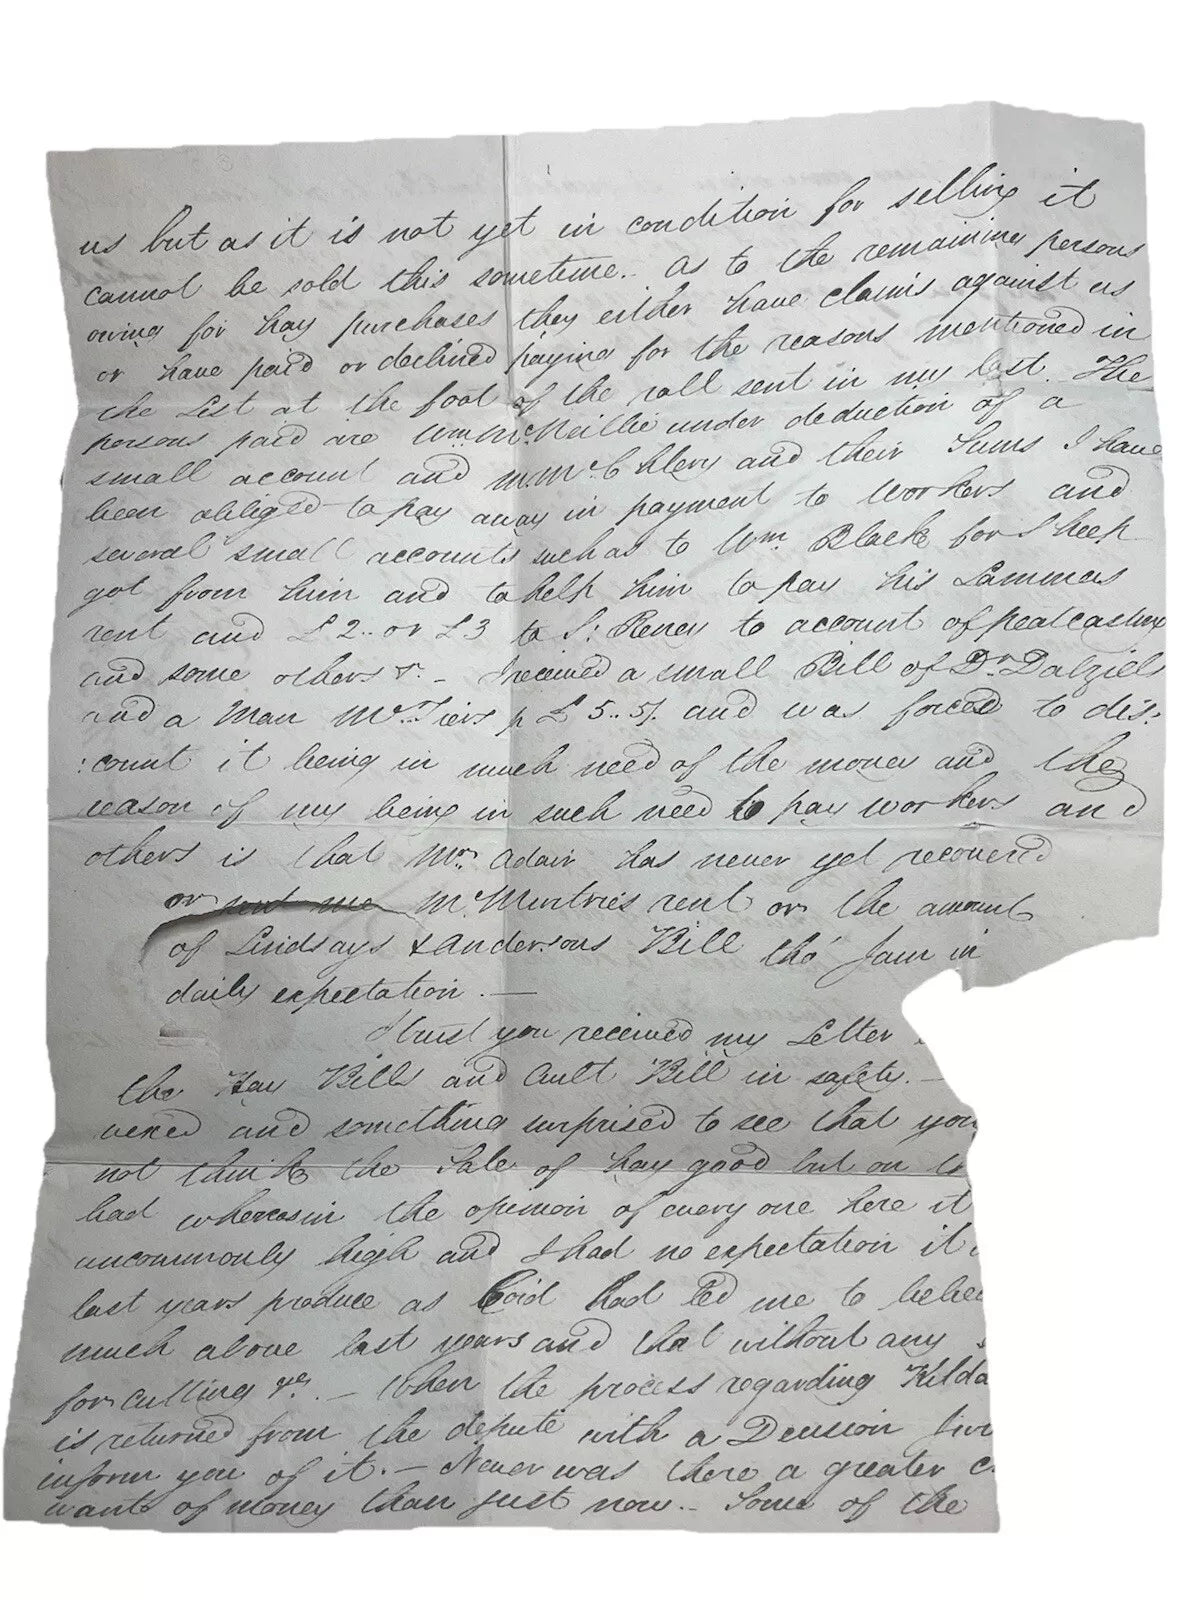 us but as it is not yet in condition for selling it
cannot be sold this sometime.. As to the remaining persons
owing for hay purchases they either have claims against us
or have paid or declined paying for the reasons mentioned in
the List at the foot of the roll sent in my last. The
persons paid are Wm McNeillie under deduction of a
small account and and their Sums I have
been obliged to pay away in payment to Workers and
several small accounts such as to Wm. Black for Sheep
got from him and to help him to pay his Lammas
rent and £2.. or £3 to to account of peatcasting
and some others &c. - I received a small Bill of Dr. Dalziels
and a Man p £5..5/. and was forced to dis:
:count it being in much need of the money and the
reason of my being in such need to pay workers and
others is that Mr. Adair has never yet recovered
or sent me McMurtries rent or the amount
of Lindsays & Andersons Bill tho' I am in
daily expectation. —
I trust you received my Letter
the Hay Bills and Ault Bill in safety. —
vexed and something surprised to see that you
not think the Sale of hay good but on
bad whereas in the opinion of every one here it
uncommonly high and I had no expectation it
last years produce as had led me to belie
much above last years and that without any
for cutting &c. — When the process regarding Kilda
is returned from the depute with a Decision I wi
inform you of it. — Never was there a greater
want of money than just now.. Some of the